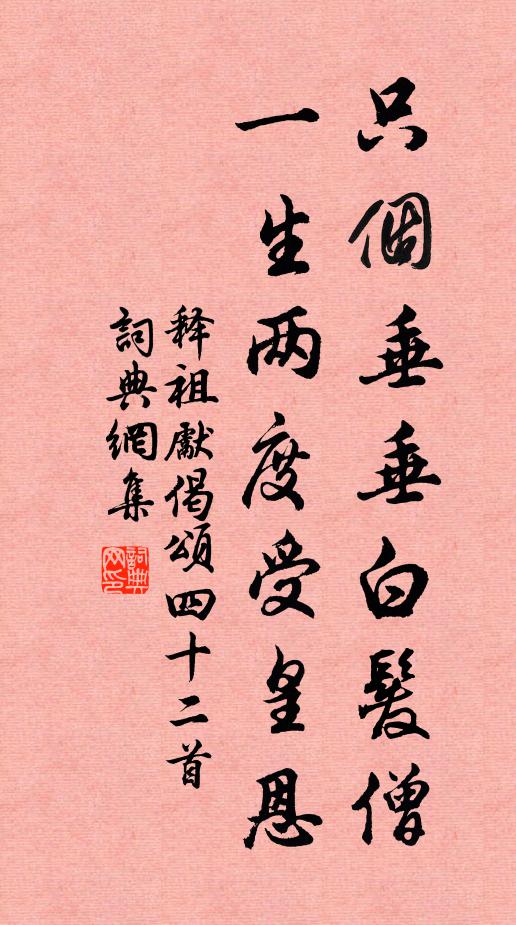 只個垂垂白髮僧
一生两度受皇恩
释祖獻偈頌四十二首
詞典網集
詞典网印